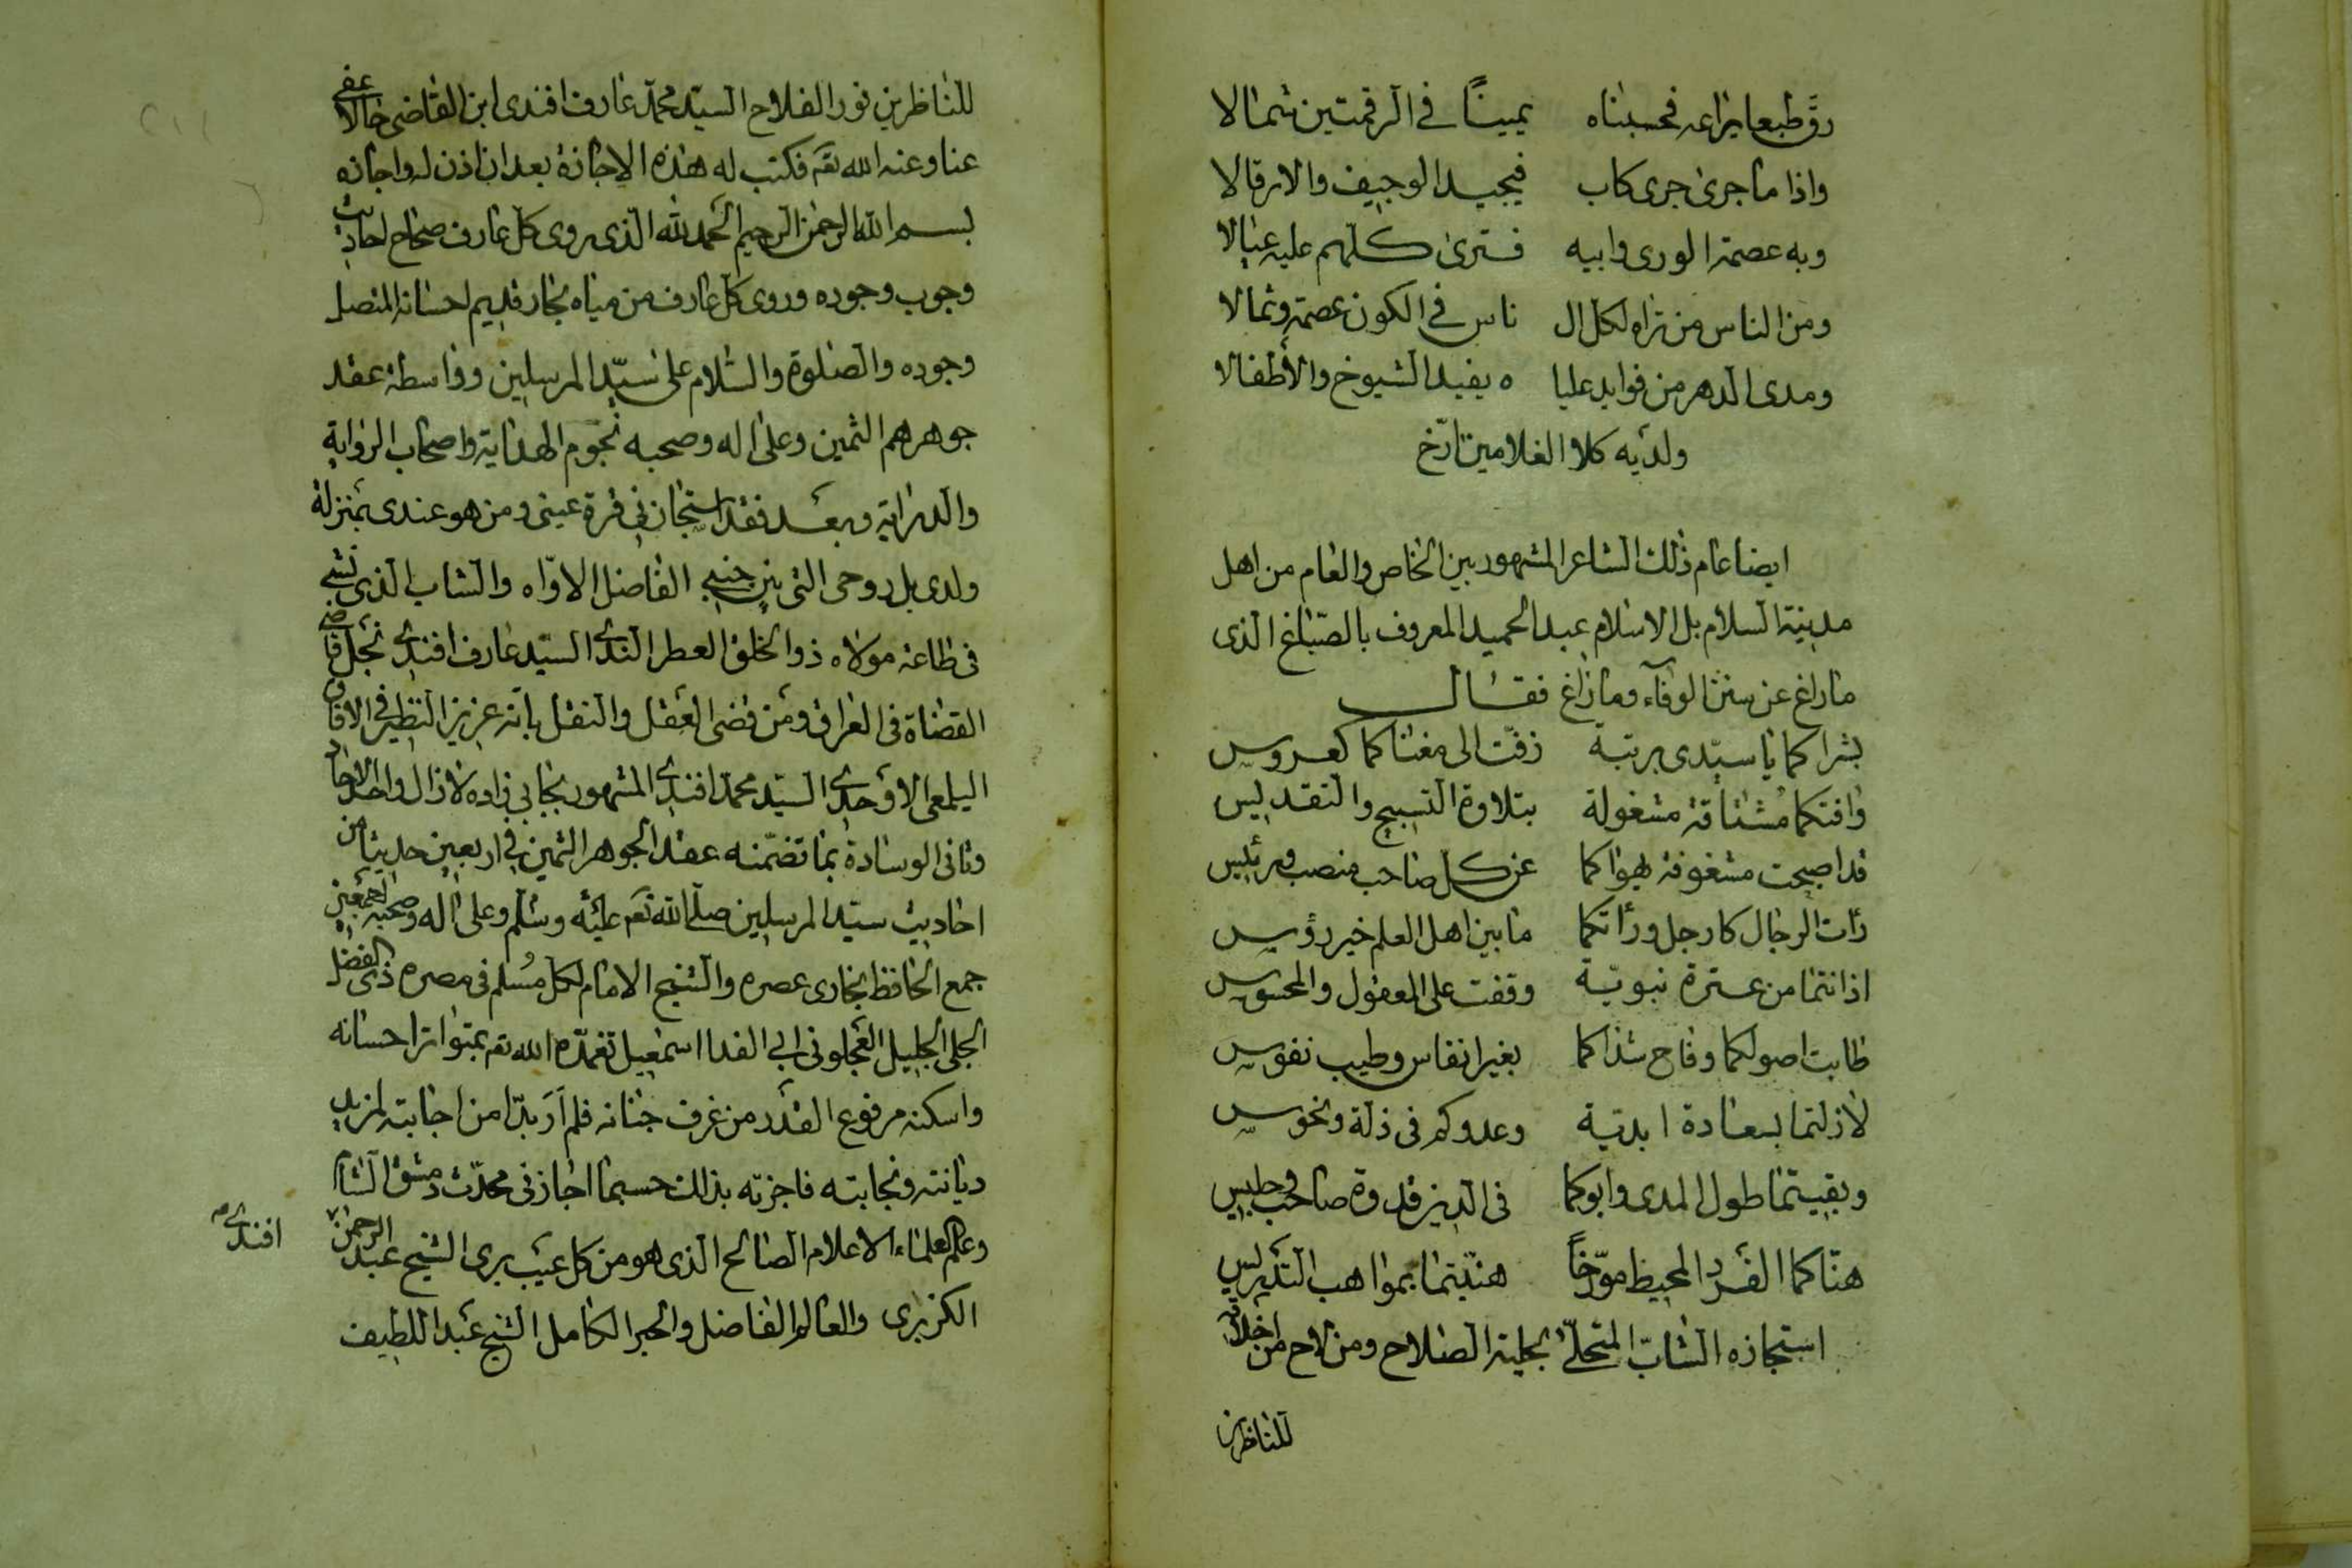 رق طبعا يراعه فحسبناه يمينًا في الرقمتين شمالا
واذا ما جرى جرى كاب فيجيد الوجيف والارقالا
وبه عصمة الورى وابيه فترى كلهم عليه عيالا
ومن الناس من تراه لكل ال ناس في الكون عصمة وثمالا
ومدى الدهر من فوايد عليا ه يفيد الشيوخ والأطفالا
ولديه كلا الغلامين ارّخ
ايضا عام ذلك الشاعر المشهور بين الخاص والعام من اهل
مدينة السلام بل الاسلام عبد الحميد المعروف بالصبّاغ الذى
ما راغ عن سنن الوفآء وما زاغ فقال
بشراكما يا سيّدى برتبة زفّت الى مغناكما كعروس
وافتكما مشتاقة مشغولة بتلاوة التسبيح والتقديس
قد اصبحت مشغوفة بهواكما عن كل صاحب منصب ورئيس
رأت الرجال كارجل ورأتكما ما بين اهل العلم خير رؤس
اذ انتما من عترة نبويّة وقفت على المعقول والمحسوس
طابت اصولكما وفاح شذاكما بغير انفاس وطيب نفوس
لازلتما بسعادة ابديّة وعدوكم فى ذلة ونحوس
وبقيتما طول المدى وابوكما فى الدين قدوة صاحب وجليس
هنّاكما الفرد المحيط مؤرّخًا هنّيتما بمواهب التدريس
استجازه الشابّ المتحلّى بحلية الصلاح ومن لاح من اخلاقه
للناظرين
للناظرين نور الفلاح السيّد محمد عارف افندى ابن القاضى حالا عفى
عنا وعنه الله تعـ فكتب له هذه الاجازة بعد ان اذن له واجازه
بسم الله الرحمن الرحيم الحمد لله الذى يروى كل عارف صحاح احاديث
وجوب وجوده وروى كل عارف من مياه بحار قديم احسانه المتصل
وجوده والصلوة والسّلام على سيّد المرسلين وواسطة عقد
جوهرهم الثمين وعلى اله وصحبه نجوم الهداية واصحاب الرواية
والدراية وبعد فقد استجازنى قرة عينى ومن هو عندى بمنزلة
ولدى بل روحى التى بين جنبي الفاضل الاوّاه والشاب الذى نشى
فى طاعة مولاه ذو الخلق العطر الندى السيّد عارف افندى نجل قاضى
القضاة فى العراق ومن قضى العقل والنقل بانه عزيز النظير فى الافاق
اليلمعى الاوحدى السيّد محمد افندى المشهور بجابى زاده لازال واحد الاحاد
وثانى الوسادة بما تضمّنه عقد الجوهر الثمين فى اربعين حديثا من
احاديث سيّد المرسلين صلى الله تعـ عليه وسلم وعلى اله وصحبه اجمعين
جمع الحافظ بخارى عصره والشيخ الامام لكل مُسلم فى مصره ذى الفضل
الجلى الجليل العجلونى ابى الفدا اسمعيل تغمّده الله تعـ بمتواتر احسانه
واسكنه مرفوع القدر من غرف جنانه فلم أر بدّا من اجابته لمزيد
ديانته ونجابته فاجزته بذلك حسبما اجازنى محدّث دمشق الشام
وعلم العلماء الاعلام الصالح الذى هو من كل عيب برى الشيخ عبد الرحمن
افندى
الكزبرى والعالم الفاضل والحبر الكامل الشيخ عبد اللطيف